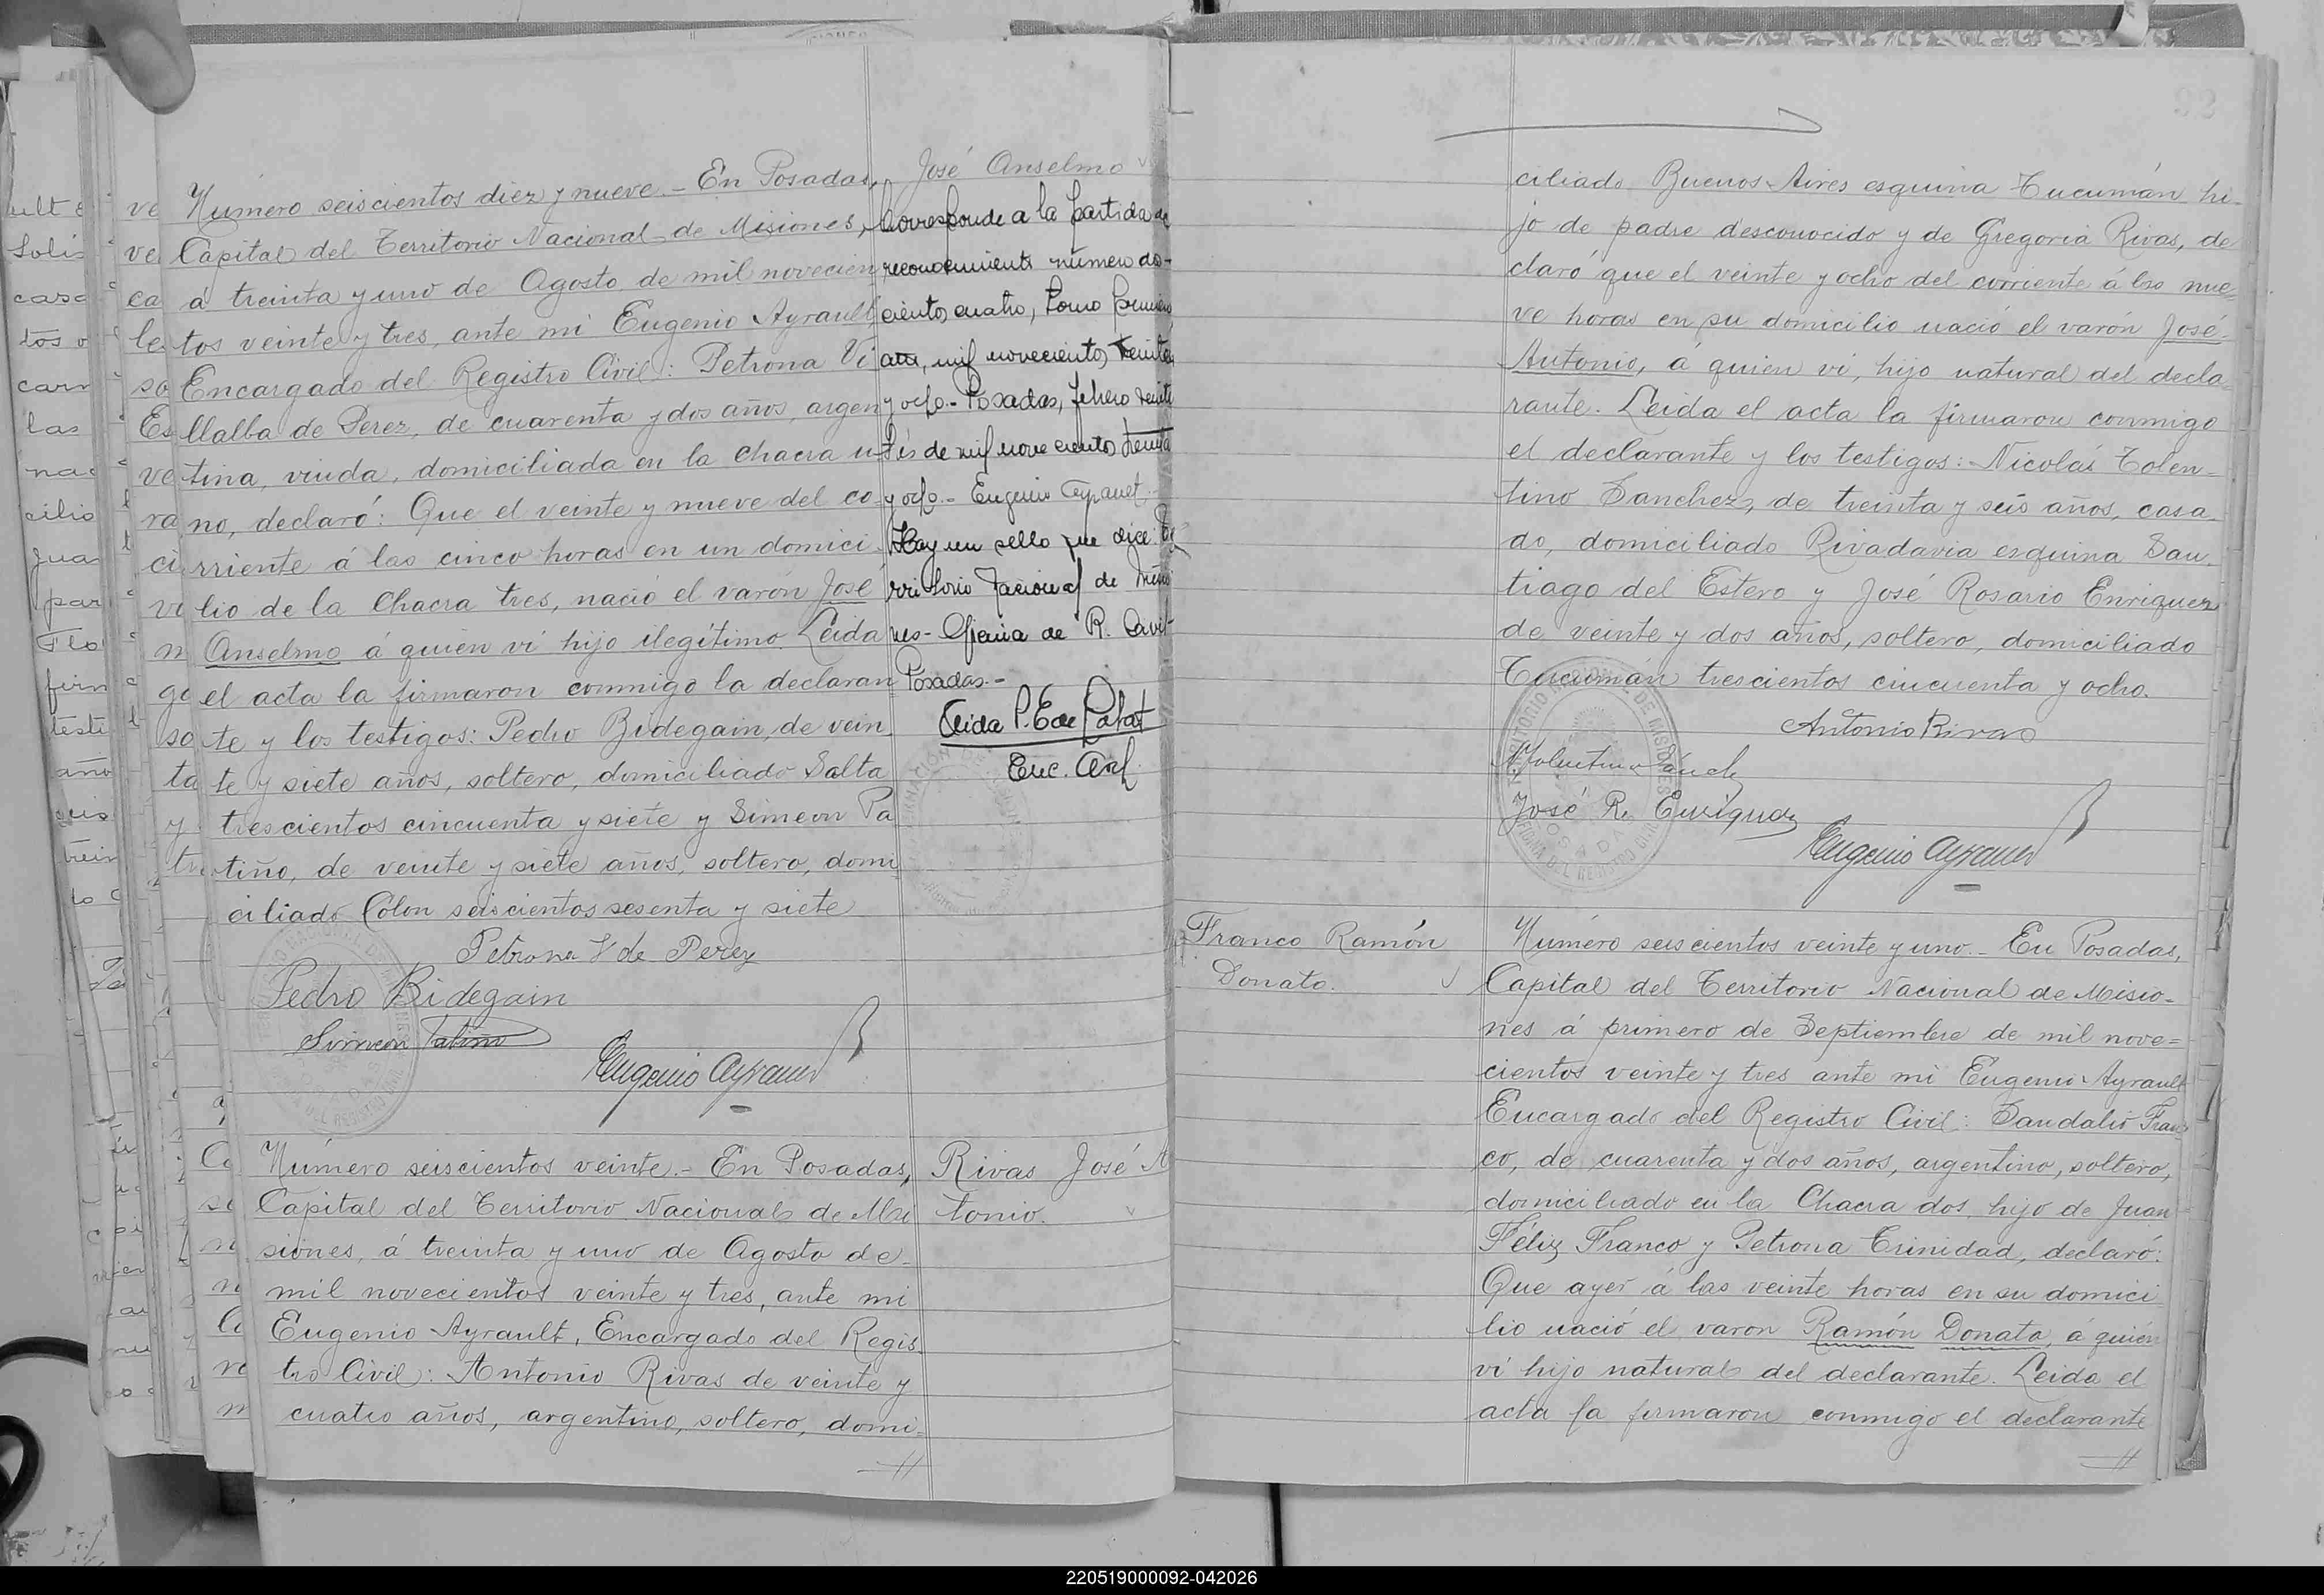 Número seiscientos diez y nueve.- En Posadas,
Capital del Territorio Nacional de Misiones,
á treinta y uno de Agosto de mil novecien
tos veinte y tres, ante mi Eugenio Ayrault,
Encargado del Registro Civil: Petrona Vi
llalba de Perez, de cuarenta y dos años, argen
tina, viuda, domiciliada en la Chacra u-
no, declaró: Que el veinte y nueve del co-
rriente á las cinco horas en un domici
lio de la Chacra tres, nació el varón José
Anselmo á quien ví hijo ilegítimo. Leida
el acta la firmaron conmigo la declaran
te y los testigos: Pedro Bidegain, de vein
te y siete años, soltero, domiciliado Salta
trescientos cincuenta y siete y Simeon Pa
tiño, de veinte y siete años, soltero, domi
ciliado Colon seiscientos sesenta y siete
Petrona V de Perez
Pedro Bidegain
Simeon Patiño
Eugenio Ayrault
José Anselmo
Corresponde a la partida de
reconocimiento número dos-
cientos cuatro, tomo primero
año, mil novecientos treinta
y ocho.- Posadas, febrero veinti
trés de mil novecientos treinta
y ocho.- Eugenio Ayrault.
Hay un sello que dice: Te
rritorio Nacional de Misio
nes- Oficina de R. Civil-
Posadas.-
Enc. Arch.
Número seiscientos veinte.- En Posadas,
Capital del Territorio Nacional de Mi
siones, á treinta y uno de Agosto de
mil novecientos veinte y tres, ante mi
Eugenio Ayrault, Encargado del Regis
tro Civil: Antonio Rivas de veinte y
cuatro años, argentino, soltero, domi-
Rivas José A
tonio.
ciliado Buenos Aires esquina Tucumán hi-
jo de padre desconocido y de Gregoria Rivas, de
claró que el veinte y ocho del corriente á las nue-
ve horas en su domicilio nació el varón José
Antonio, á quien ví, hijo natural del decla-
rante. Leida el acta la firmaron conmigo
el declarante y los testigos: Nicolás Tolen-
tino Sanchez, de treinta y seis años, casa
do, domiciliado Rivadavia esquina San
tiago del Estero y José Rosario Enriquez
de veinte y dos años, soltero, domiciliado
Tucumán trescientos cincuenta y ocho.
Antonio Rivas
N. Tolentino Sánchez
José R. Enriquez
Eugenio Ayrault
Franco Ramón
Donato.
Número seiscientos veinte y uno.- En Posadas,
Capital del Territorio Nacional de Misio-
nes á primero de Septiembre de mil nove=
cientos veinte y tres ante mi Eugenio Ayrault
Encargado del Registro Civil: Sandalio Fran
co, de cuarenta y dos años, argentino, soltero,
domiciliado en la Chacra dos, hijo de Juan
Féliz Franco y Petrona Trinidad, declaró:
Que ayer á las veinte horas en su domici
lio nació el varon Ramón Donato, á quién
ví hijo natural del declarante. Leida el
acta la firmaron conmigo el declarante
220519000092-042026